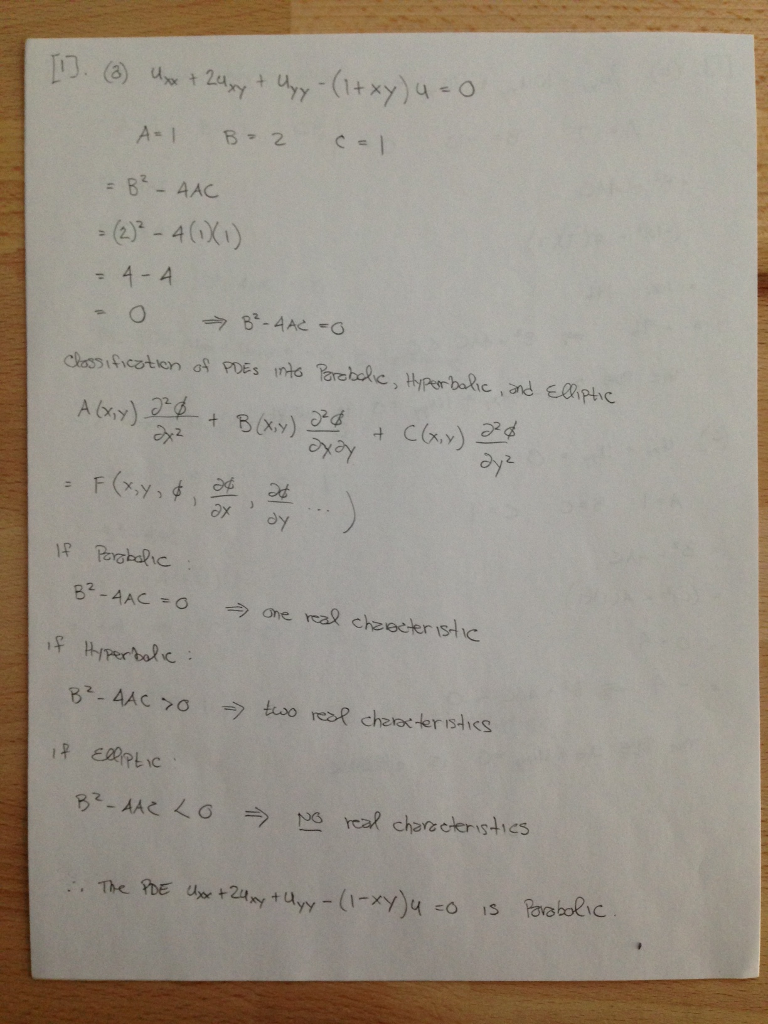 [1]. (3) uxx + 2uxy + uyy - (1+xy)u = 0
A=1 B=2 C=1
= B² - 4AC
= (2)² - 4(1)(1)
= 4 - 4
= 0 ⇒ B²-4AC = 0
Classification of PDEs into Parabolic, Hyperbolic, and Elliptic
A(x,y) ∂²ϕ/∂x² + B(x,y) ∂²ϕ/∂x∂y + C(x,y) ∂²ϕ/∂y²
= F(x,y, ϕ, ∂ϕ/∂x, ∂ϕ/∂y ...)
If Parabolic:
B²-4AC = 0 ⇒ one real characteristic
if Hyperbolic:
B²-4AC > 0 ⇒ two real characteristics
if Elliptic:
B²-4AC < 0 ⇒ NO real characteristics
∴ The PDE uxx + 2uxy + uyy - (1-xy)u = 0 is Parabolic.